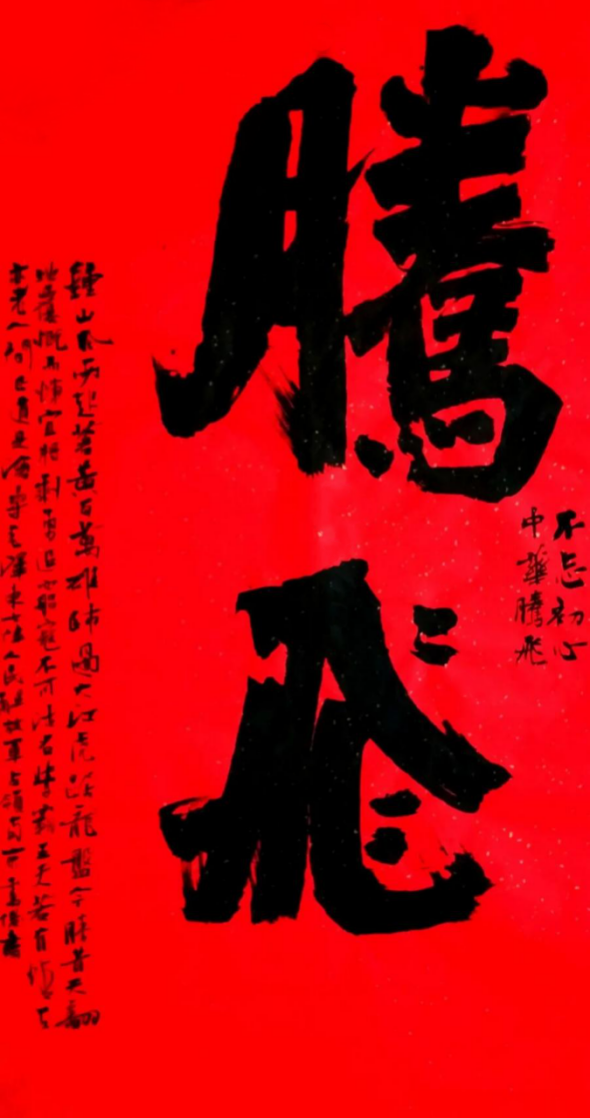 不忘初心
中華騰飛
騰飛
鍾山风雨起苍黃百萬雄師過大江虎踞龍盤今勝昔天翻
地覆慨而慷宜將剩勇追窮寇不可沽名學霸王天若有情天
亦老人間正道是滄桑毛澤東七律人民解放軍占領南京